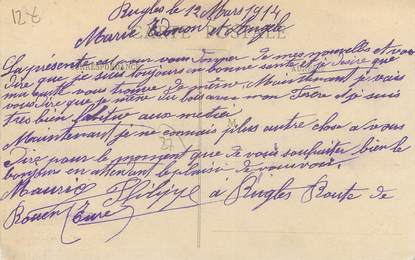 128
Rugles le 12 Mars 1914
Marie et Angèle
La présente est pour vous donner de mes nouvelles et vous
dire que je suis toujours en bonne santé et j désire que
vous de même Maintenant je vais
vous dire que je mène du bois avec mon Frère et je suis
très bien habitué aux
Maintenant je ne connais plus autre chose a vous
dire pour le moment que de vous souhaiter bien le
bonjour en attendant le plaisir de vous voir.
Maurice Philippe à Rugles Route de
Rouen (Eure)